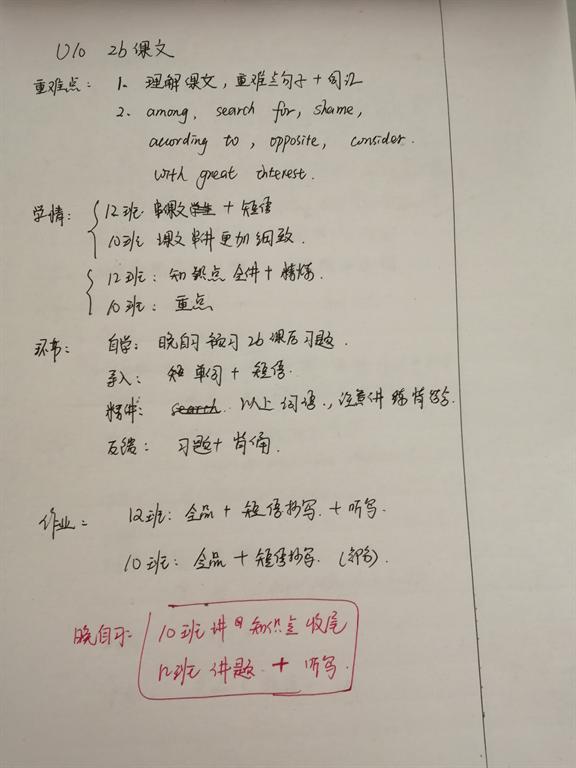 U10 2b课文
重难点: 1. 理解课文,重难点句子+词汇
2. among, search for, shame,
according to, opposite, consider.
with great interest.
学情: 12班 串课文 + 短语
10班 课文串讲更加细致.
12班: 知识点全讲+精炼
10班: 重点
环节: 自学: 晚自习预习2b课后习题.
导入: 单词+短语.
精讲: search 以上词语., 注意讲练结合.
反馈: 习题+背诵.
作业: 12班: 全品 + 短语抄写. + 听写.
10班: 全品 + 短语抄写. (部分).
晚自习: 10班讲 知识点收尾
12班讲题 + 听写.